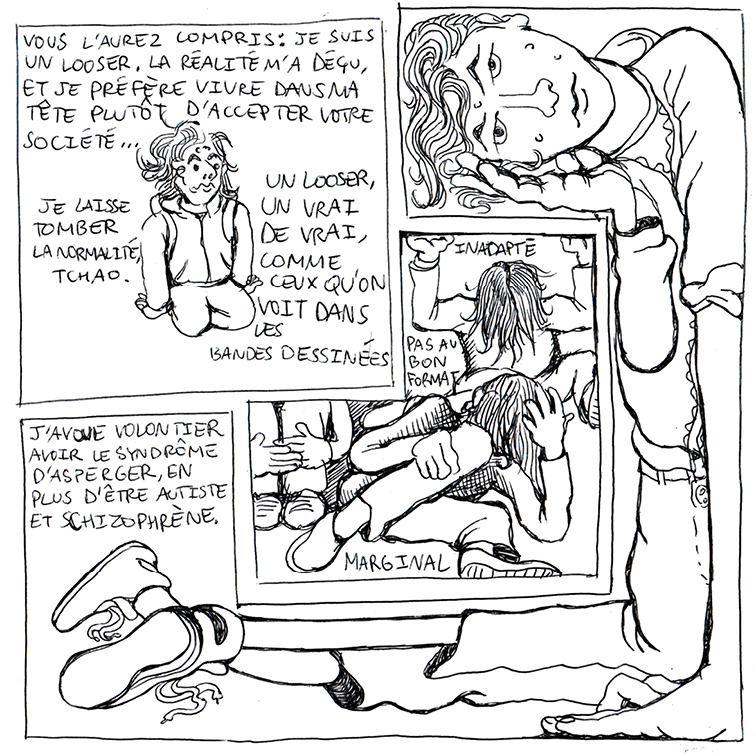 VOUS L'AUREZ COMPRIS: JE SUIS
UN LOOSER, LA RÉALITÉ M'A DÉÇU,
ET JE PRÉFÈRE VIVRE DANS MA
TÊTE PLUTÔT D'ACCEPTER VOTRE
SOCIÉTÉ...
JE LAISSE
TOMBER
LA NORMALITÉ,
TCHAO.
UN LOOSER,
UN VRAI
DE VRAI,
COMME
CEUX QU'ON
VOIT DANS
LES
BANDES DESSINÉES
INADAPTÉ
PAS AU
BON
FORMAT
MARGINAL
J'AVOUE VOLONTIER
AVOIR LE SYNDRÔME
D'ASPERGER, EN
PLUS D'ÊTRE AUTISTE
ET SCHIZOPHRÈNE.